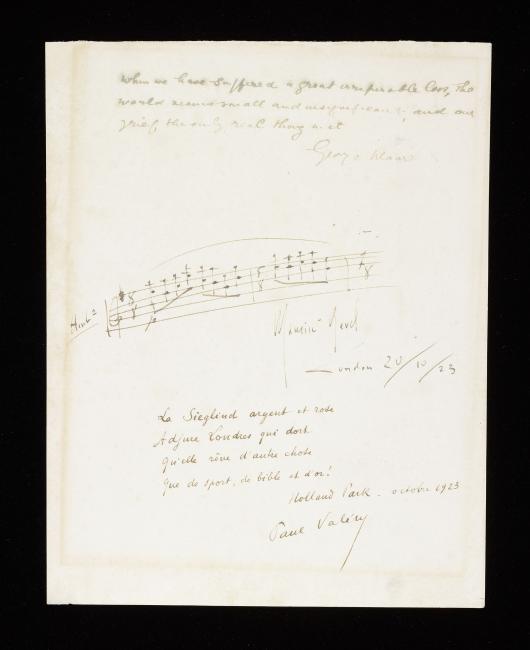 when we have suffered a great irreparable loss, the
world seems small and insignificant, and our
grief, the only real thing in it
Hautb
Maurice Ravel
London 20/10/23
La Sieglind argent et rose
Adjure Londres qui dort
Qu'elle rêve d'autre chose
Que de sport, de bible et d'or!
Holland Park - octobre 1923
Paul Valéry